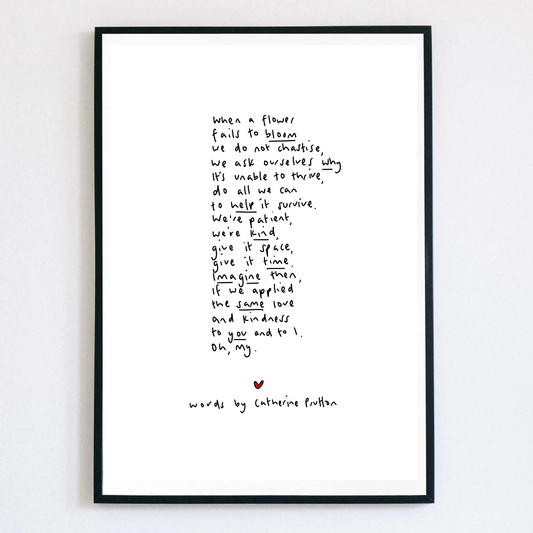 when a flower
fails to bloom
we do not chastise,
we ask ourselves why
It's unable to thrive,
do all we can
to help it survive.
We're patient,
we're kind,
give it space,
give it time.
Imagine then,
If we applied
the same love
and kindness
to you and to I.
Oh, my.
words by Catherine Prutton